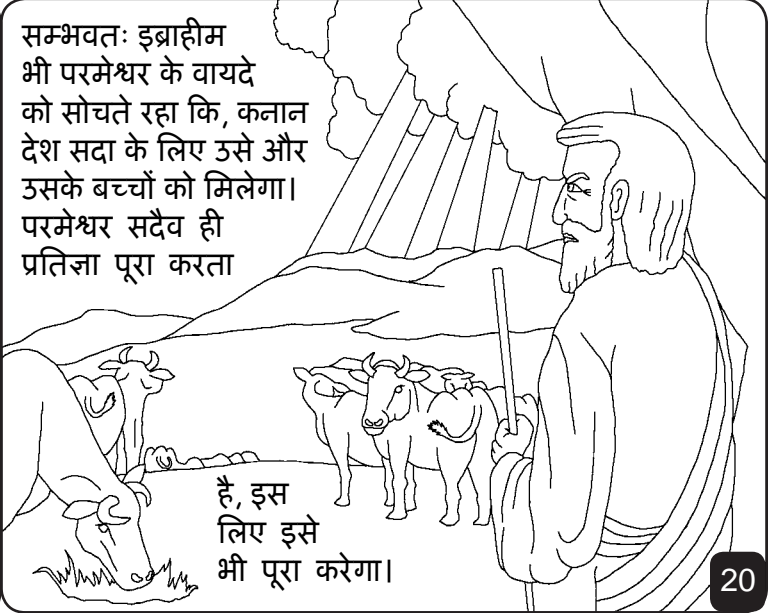 सम्भवतः इब्राहीम
भी परमेश्वर के वायदे
को सोचते रहा कि, कनान
देश सदा के लिए उसे और
उसके बच्चों को मिलेगा।
परमेश्वर सदैव ही
प्रतिज्ञा पूरा करता
है, इस
लिए इसे
भी पूरा करेगा।
20